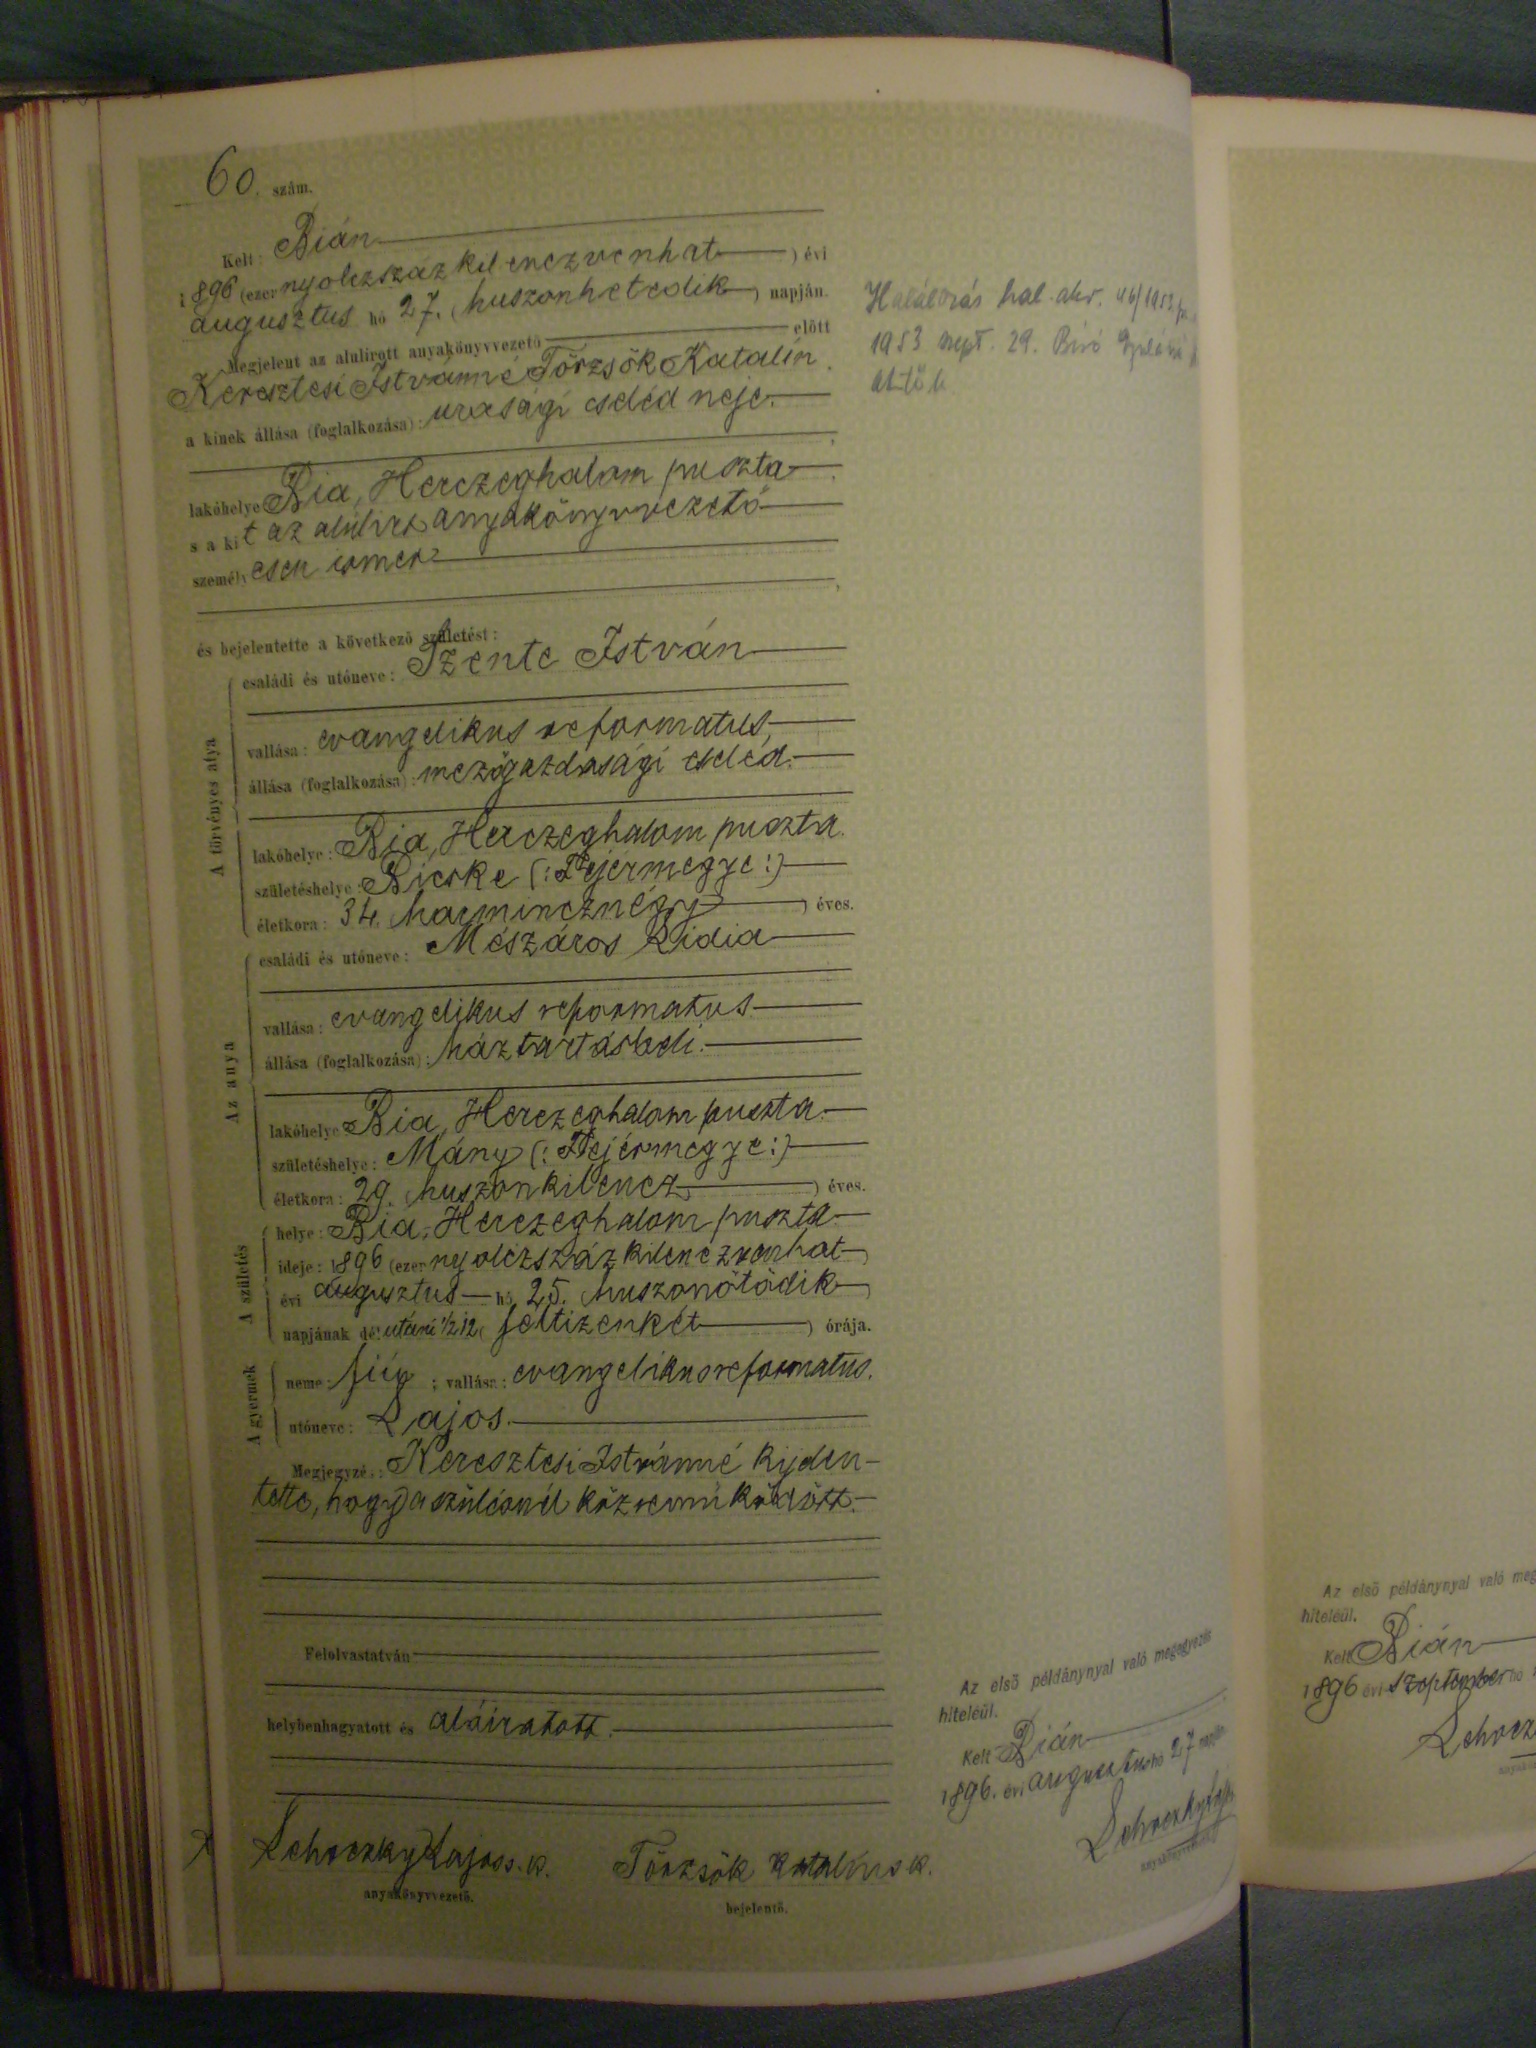 60. szám.
Kelt: Bián
1896 (ezernyolczszázkilenczvenhat) évi
augusztus hó 27. (huszonhetedik) napján.
Megjelent az alulirott anyakönyvvezető előtt
Keresztesi Istvánné Törzsök Katalin,
a kinek állása (foglalkozása): urasági cseléd neje.
lakóhelye Bia, Herczeghalom puszta
s a kit az alulirt anyakönyvvezető
személyesen ismer
és bejelentette a következő születést:
A törvényes atya
családi és utóneve: Szente István
vallása: evangelikus reformatus,
állása (foglalkozása): mezőgazdasági cseléd.
lakóhelye: Bia, Herczeghalom puszta.
születéshelye: Bicske (: Fejérmegye :)
életkora: 34. harmincznégy) éves.
Az anya
családi és utóneve: Mészáros Lidia
vallása: evangelikus reformatus
állása (foglalkozása): háztartásbeli.
lakóhelye Bia, Herczeghalom puszta.
születéshelye: Mány (: Fejérmegye :)
életkora: 29. (huszonkilencz) éves.
A születés
helye: Bia, Herczeghalom puszta.
ideje: 1896 (ezernyolczszázkilenczvenhat)
évi augusztus hó 25. huszonötödik
napjának délutáni 1/2 12 (féltizenkét) órája.
A gyermek
neme: fiú ; vallása: evangelikus reformatus.
utóneve: Lajos.
Megjegyzés: Keresztesi Istvánné kijelen-
tette, hogy a szülésnél közreműködött.
Felolvastatván
helybenhagyatott és aláiratott.
Schoczky Lajos s. k.
anyakönyvvezető.
Törzsök Katalin s k.
bejelentő.
hal. akv. 46/1953
1953 szept. 29. Biró
Az első példánynyal való megegyezés
hiteléül.
Kelt Bián
1896. évi augusztus hó 27 napján
Schoczky Lajos
anyakönyvvezető
Az első példánynyal való meg
hiteléül.
Kelt Bián
1896 évi szeptember hó
Schocz